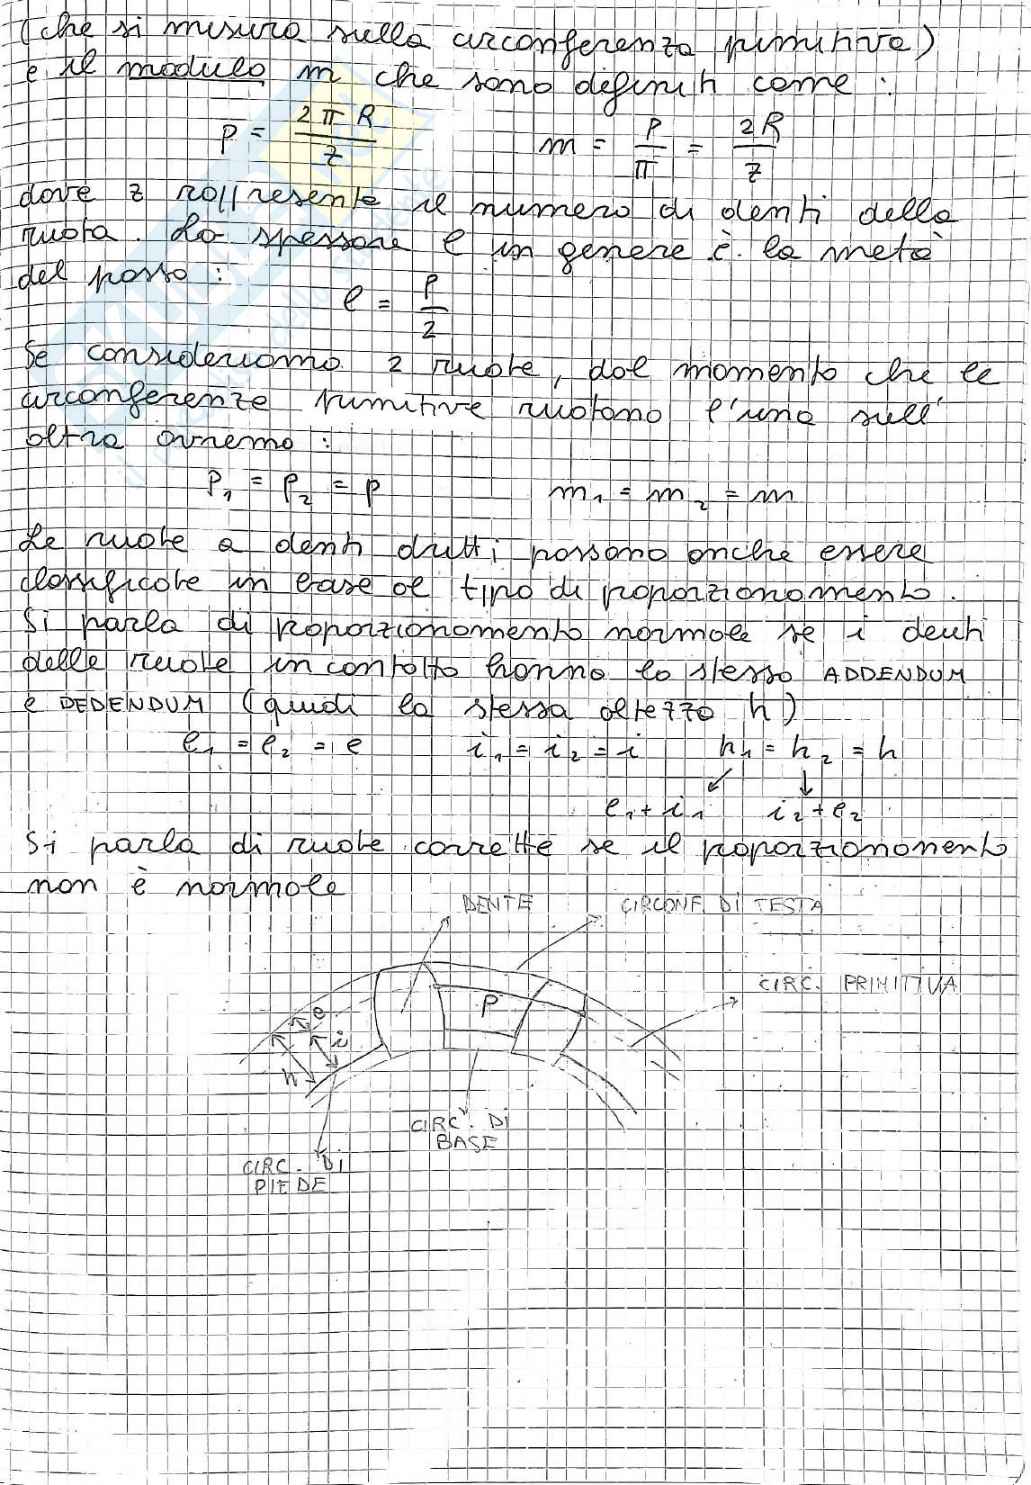 (che si misura sulla circonferenza primitiva)
e il modulo m che sono definiti come :
p = 2πR/z    m = p/π = 2R/z
dove z rappresenta il numero di denti della
ruota. Lo spessore l in genere è la metà
del passo :
l = p/2
Se consideriamo 2 ruote, dal momento che le
circonferenze primitive ruotano l'una sull'
altra avremo :
p₁ = p₂ = p    m₁ = m₂ = m
Le ruote a denti dritti possono anche essere
classificate in base al tipo di proporzionamento.
Si parla di proporzionamento normale se i denti
delle ruote in contatto hanno lo stesso ADDENDUM
e DEDENDUM (quidi la stessa altezza h)
e₁ = e₂ = e    i₁ = i₂ = i    h₁ = h₂ = h
e₁+i₁    i₂+e₂
Si parla di ruote corrette se il proporzionamento
non è normale
DENTE    CIRCONF. DI TESTA
CIRC. PRIMITIVA
e
P
i
h
CIRC. DI
BASE
CIRC. DI
PIEDE